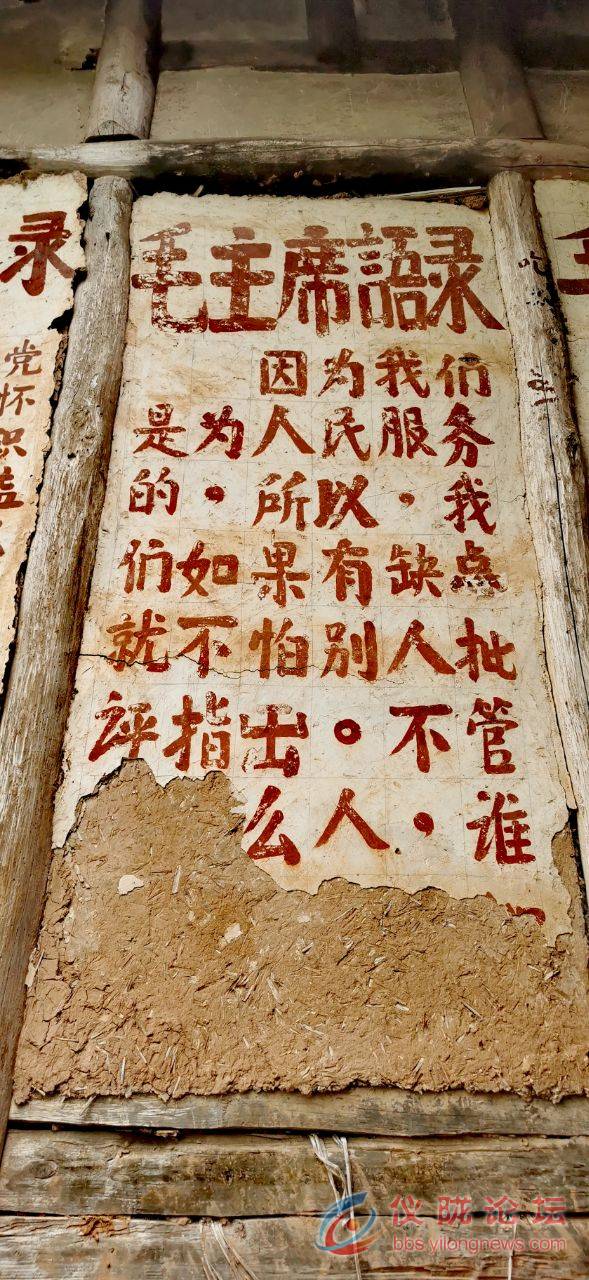 录
党
怀
毛主席語录
因为我们
是为人民服务
的，所以，我
们如果有缺点
就不怕别人批
评指出。不管
么人，谁
仪陇论坛
bbs.yilongnews.com